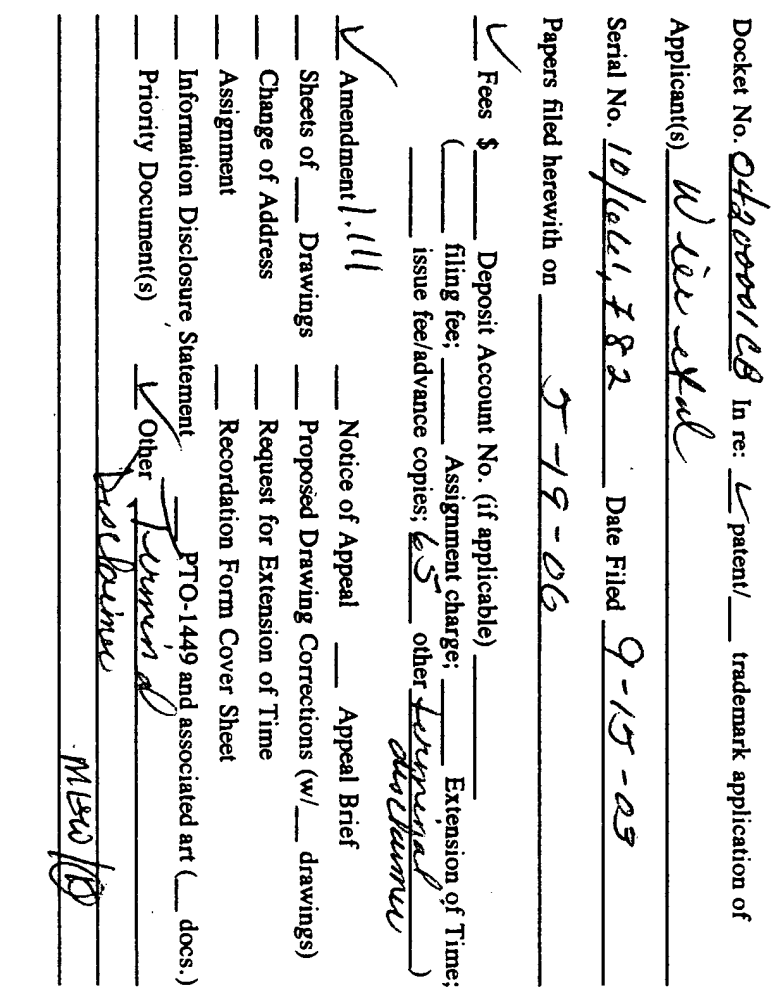 Docket No. 04200001CB In re: ✓ patent/__ trademark application of
Applicant(s) Wier et al
Serial No. 10/661,782 Date Filed 9-15-03
Papers filed herewith on 5-19-06
✓ Fees $ ____ Deposit Account No. (if applicable) ____
( ____ filing fee; ____ Assignment charge; ____ Extension of Time;
____ issue fee/advance copies; 65 other terminal disclaimer )
✓ Amendment 1.111 __ Notice of Appeal __ Appeal Brief
__ Sheets of __ Drawings __ Proposed Drawing Corrections (w/__ drawings)
__ Change of Address __ Request for Extension of Time
__ Assignment __ Recordation Form Cover Sheet
__ Information Disclosure Statement __ PTO-1449 and associated art (__ docs.)
__ Priority Document(s) ✓ Other Terminal
Disclaimer